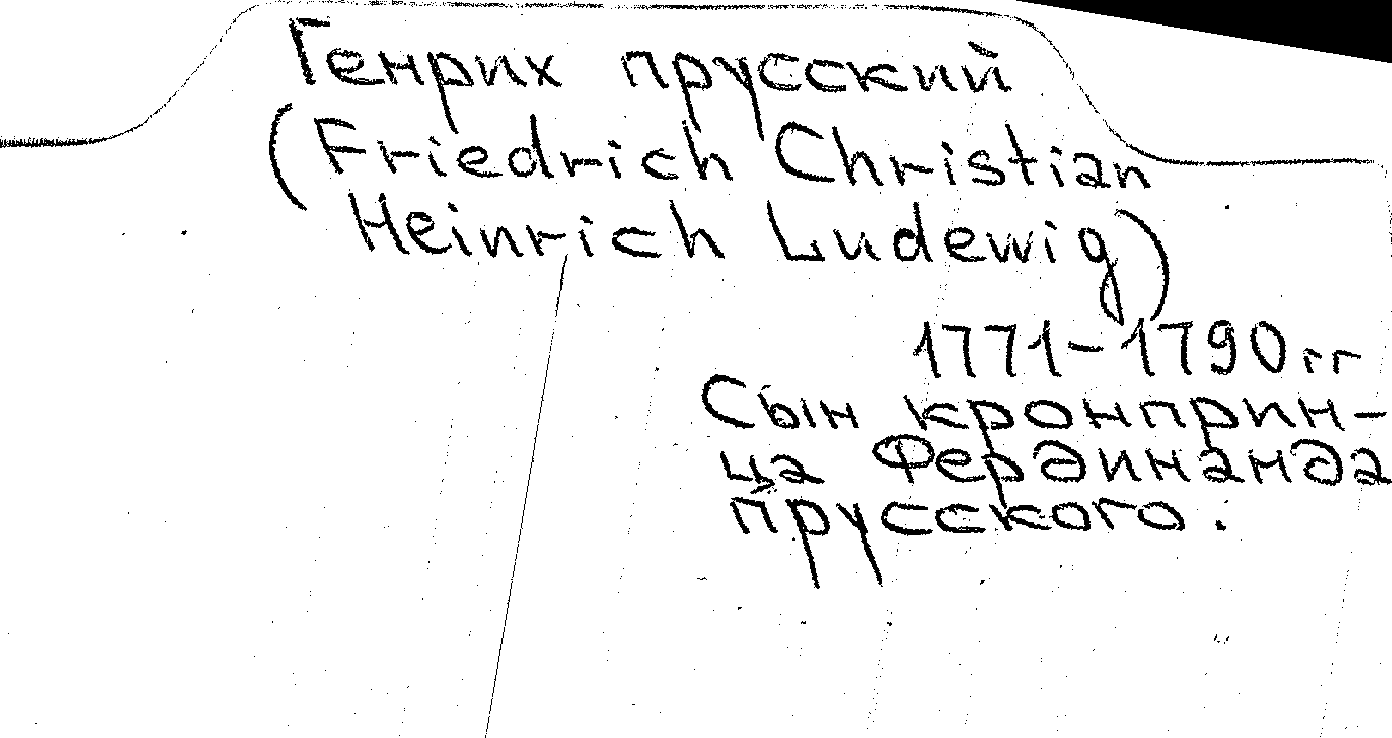 Генрих прусский
(Friedrich Christian
Heinrich Ludewig)
1771-1790 гг
Сын кронприн-
ца Фердинанда
прусского.